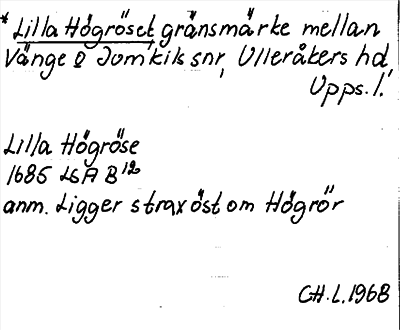 * Lilla Högröset gränsmärke mellan
Vänge o Jumkils snr, Ulleråkers hd,
Upps. l.
Lilla Högröse
1685 LSA B 12
anm. Ligger strax öst om Högrör
CH. L. 1968